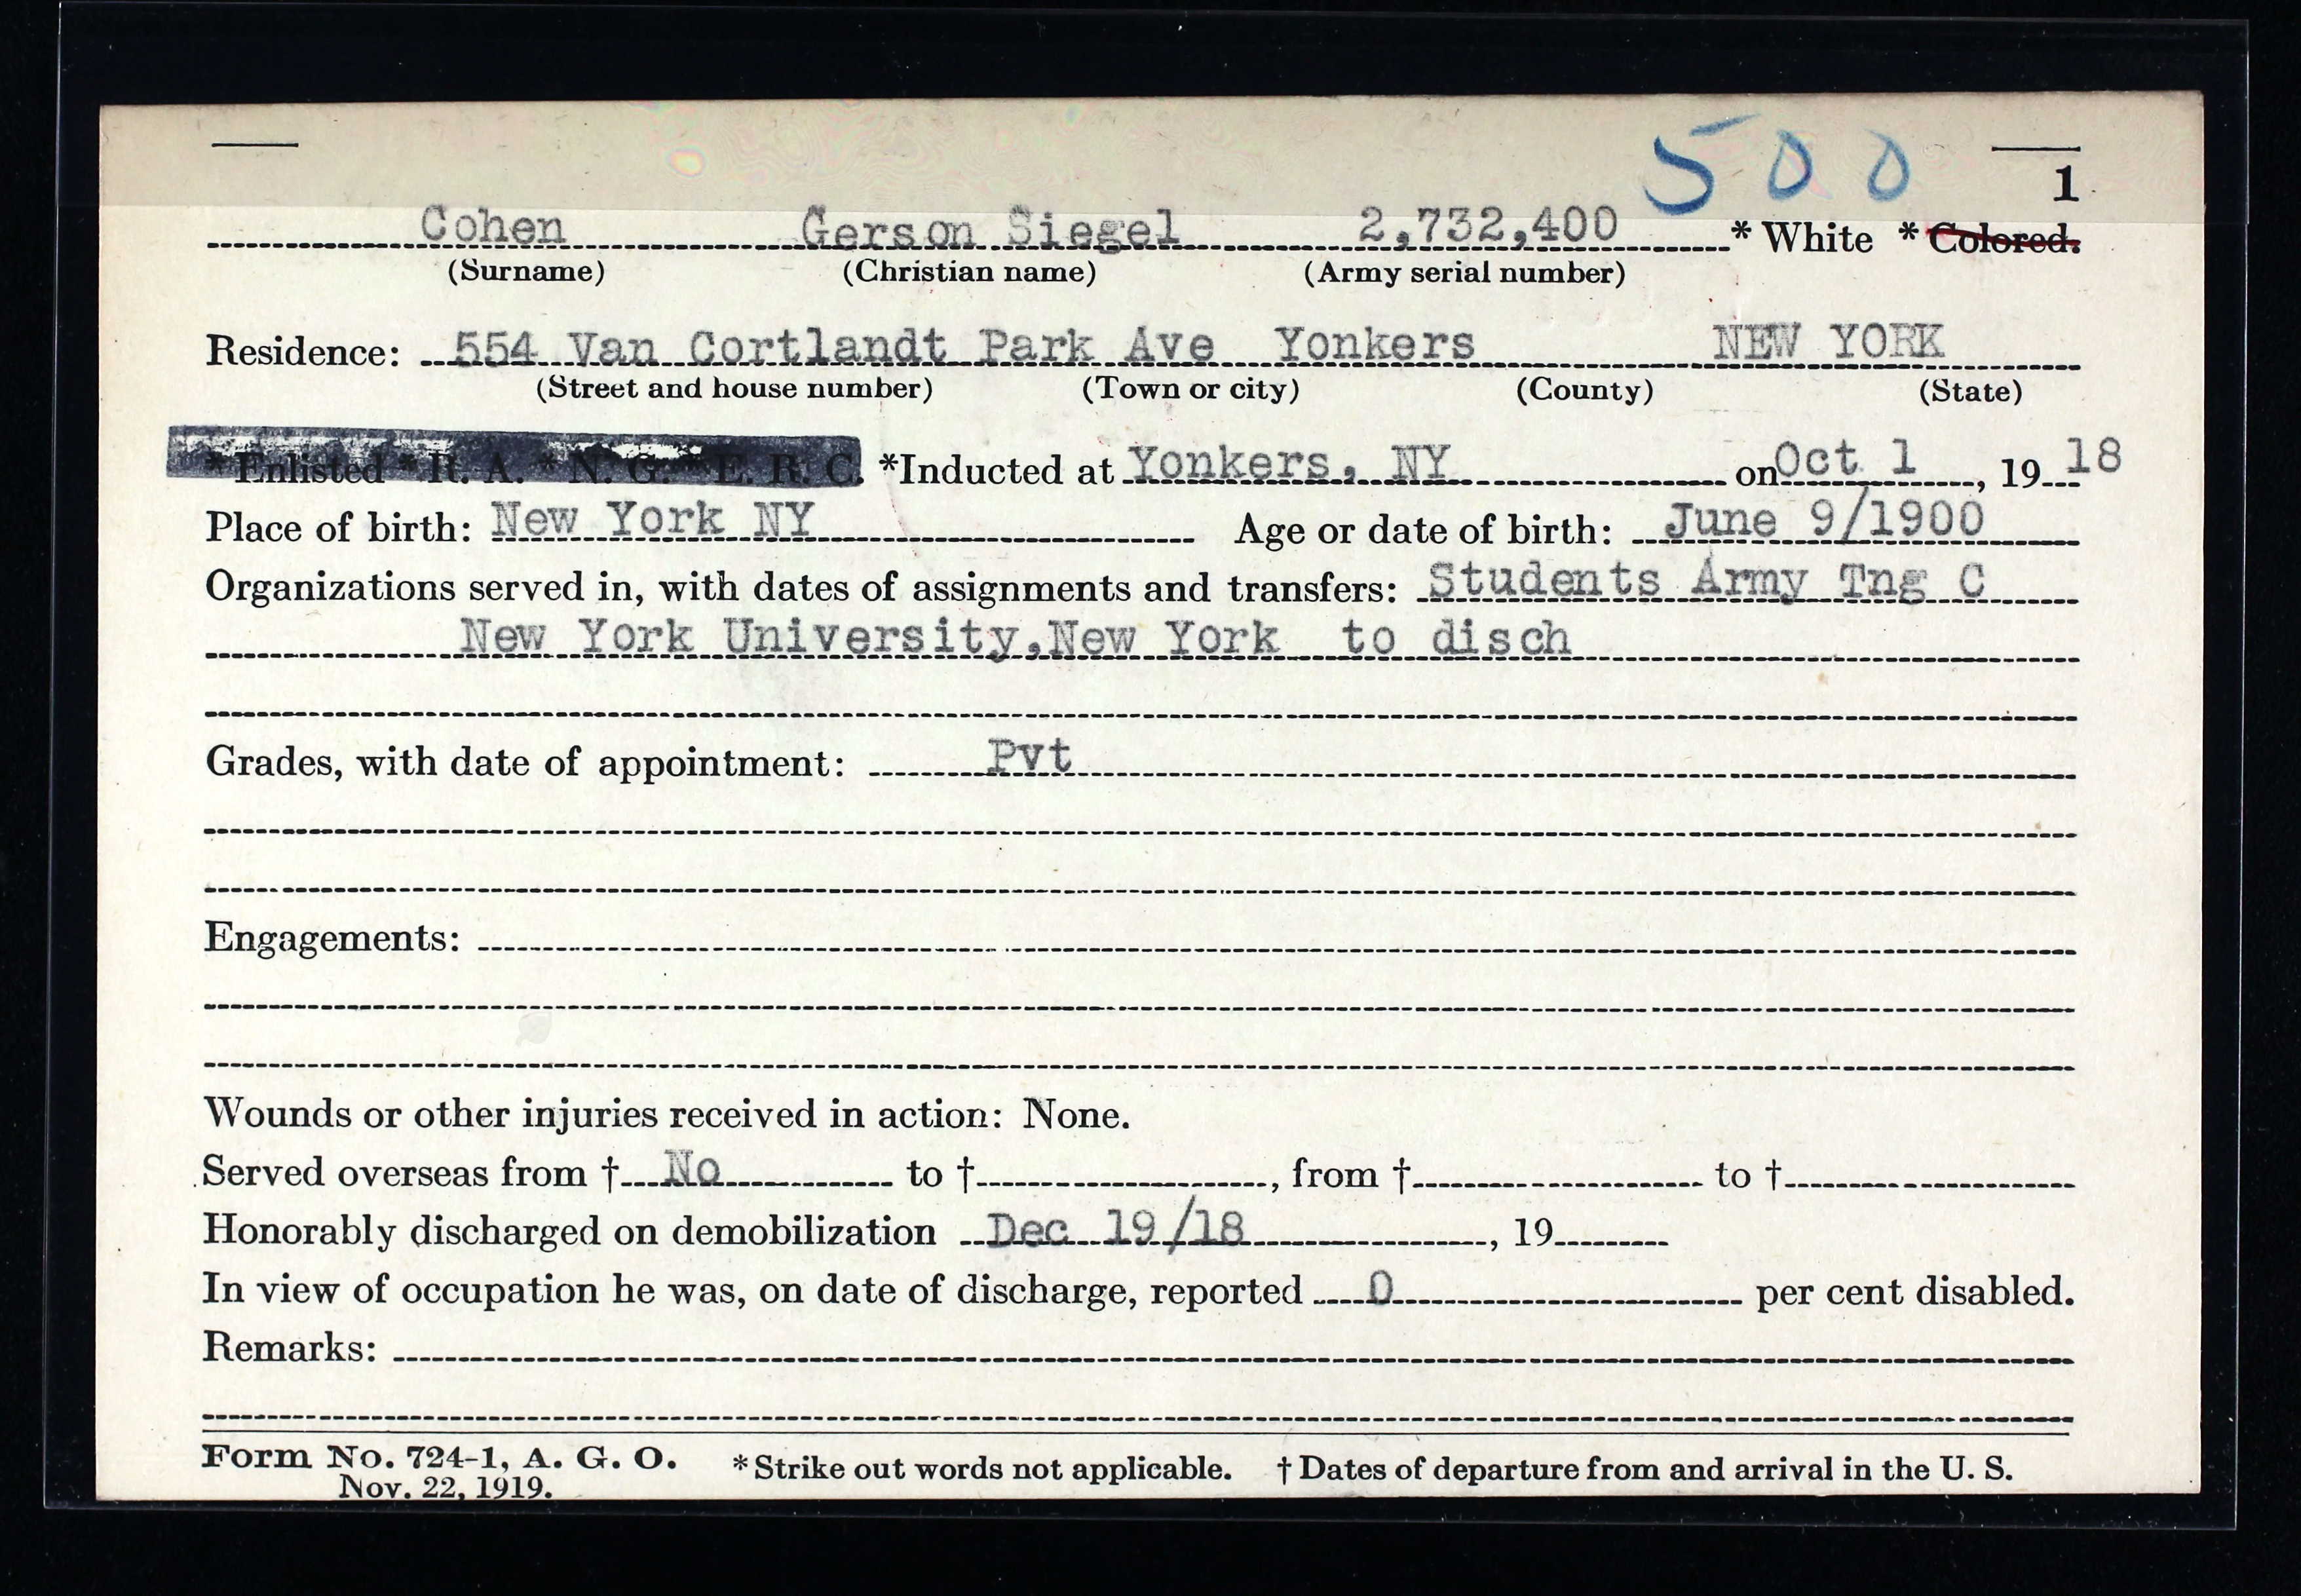 500
1
Cohen Gerson Siegel 2,732,400 * White * Colored.
(Surname) (Christian name) (Army serial number)
Residence: 554 Van Cortlandt Park Ave Yonkers NEW YORK
(Street and house number) (Town or city) (County) (State)
* Enlisted * R. A. * N. G. * E. R. C. *Inducted at Yonkers, NY on Oct 1, 19 18
Place of birth: New York NY Age or date of birth: June 9/1900
Organizations served in, with dates of assignments and transfers: Students Army Tng C
New York University,New York to disch
Grades, with date of appointment: Pvt
Engagements:
Wounds or other injuries received in action: None.
Served overseas from † No to † , from † to †
Honorably discharged on demobilization Dec 19/18 , 19
In view of occupation he was, on date of discharge, reported 0 per cent disabled.
Remarks:
Form No. 724-1, A. G. O. * Strike out words not applicable. † Dates of departure from and arrival in the U. S.
Nov. 22, 1919.